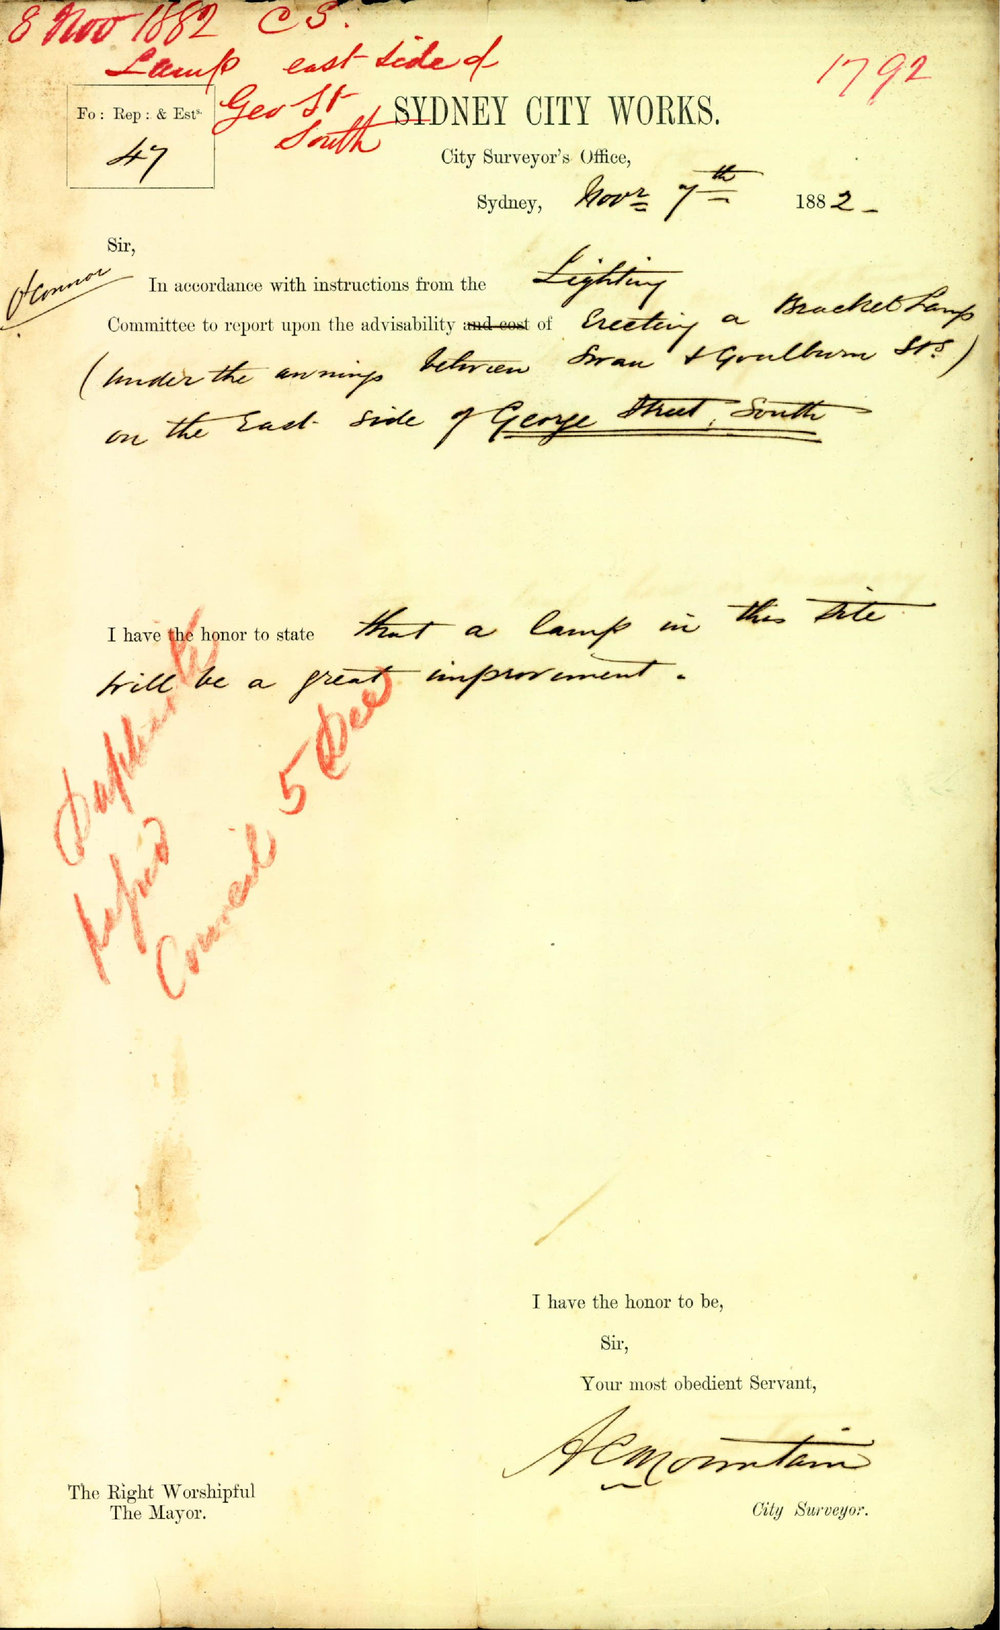 8 Nov 1882 C S.
Lamp east side of
Geo St
South
1792
Fo: Rep: & Ests.
47
SYDNEY CITY WORKS.
City Surveyor's Office,
Sydney, Novr 7th 1882
Sir,
O'Connor
In accordance with instructions from the Lighting
Committee to report upon the advisability and cost of Erecting a Bracket Lamp
(under the awnings between Swan & Goulburn Sts.)
on the East side of George Street, South
I have the honor to state that a lamp in this site
will be a great improvement.
Duplicate
Council 5 Dec
I have the honor to be,
Sir,
Your most obedient Servant,
A C Mountain
City Surveyor.
The Right Worshipful
The Mayor.